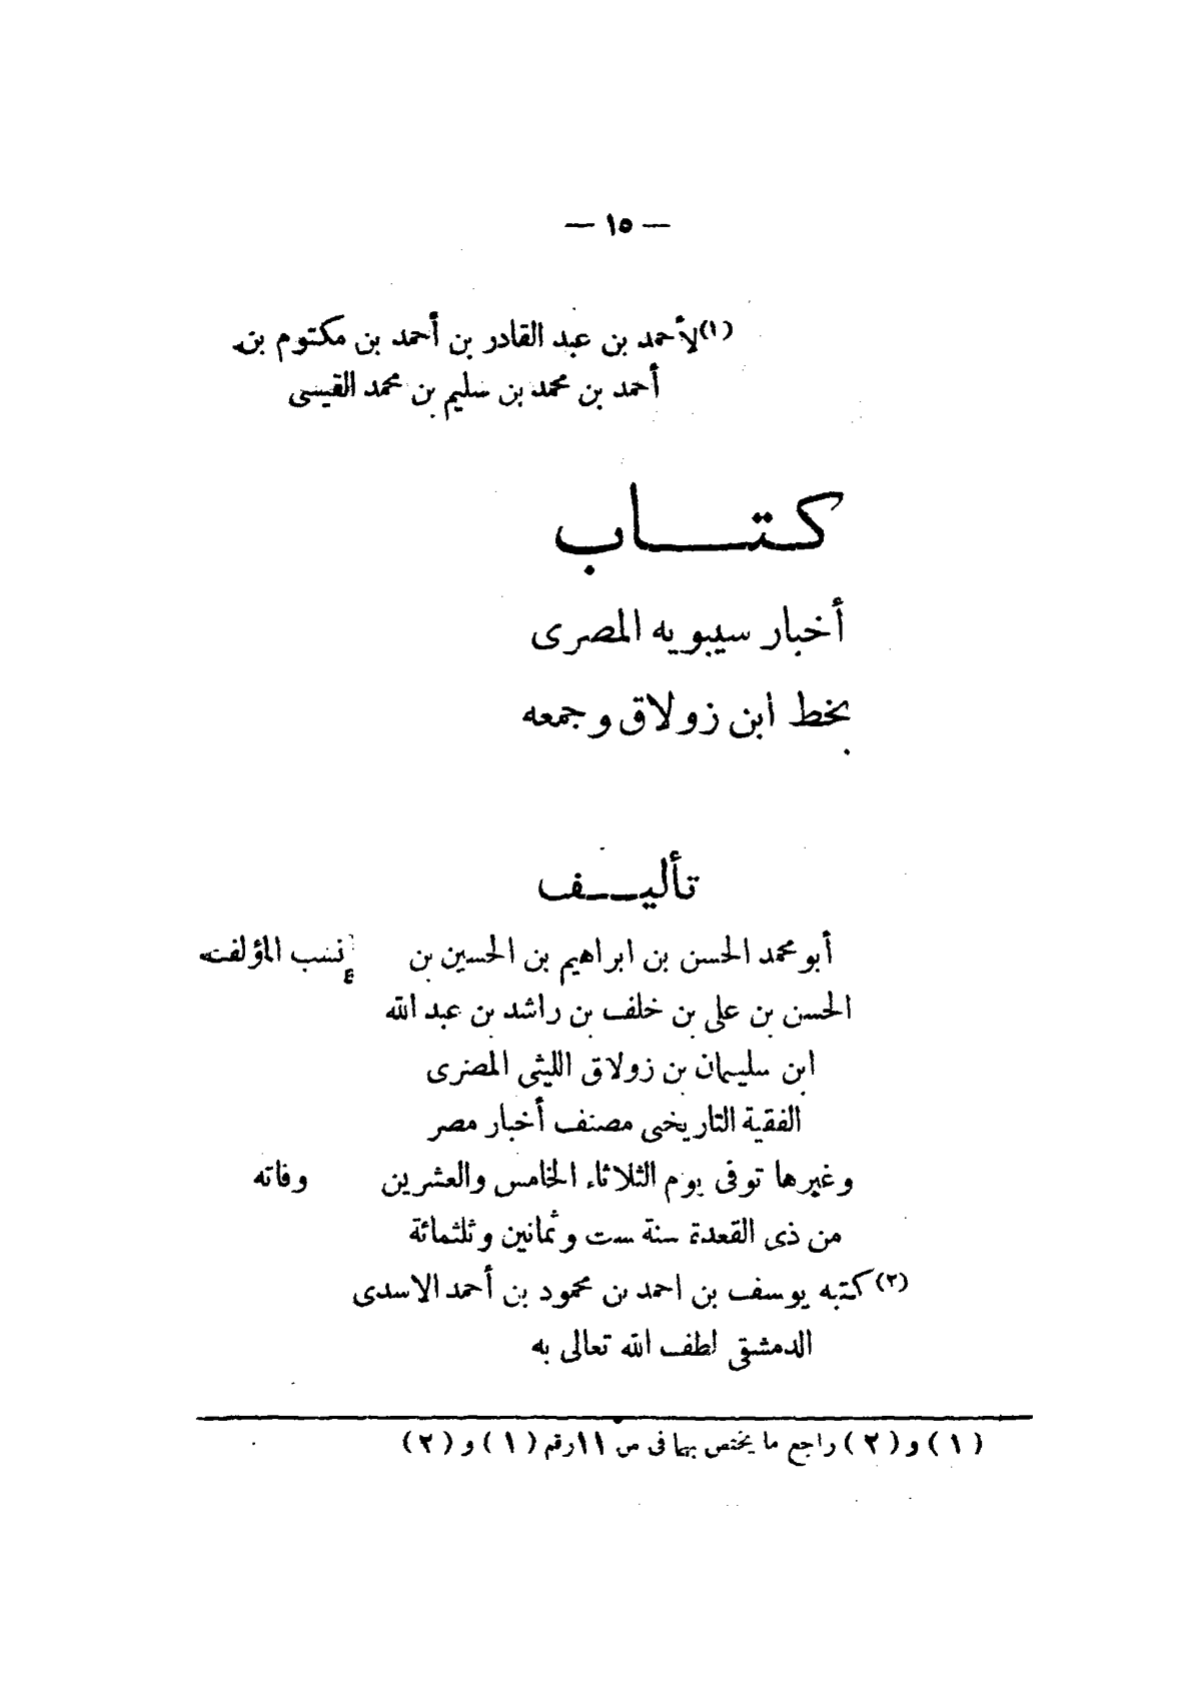 — ١٥ —
(١) لأحمد بن عبد القادر بن أحمد بن مكتوم بن
أحمد بن محمد بن سليم بن محمد القيسى
كتـــاب
أخبار سيبويه المصرى
بخط ابن زولاق وجمعه
تأليـــف
أبو محمد الحسن بن ابراهيم بن الحسين بن نسب المؤلف
الحسن بن على بن خلف بن راشد بن عبد الله
ابن سليمان بن زولاق الليثى المصرى
الفقية التاريخى مصنف أخبار مصر
وغيرها توفى يوم الثلاثاء الخامس والعشرين وفاته
من ذى القعدة سنة ست وثمانين وثلثمائة
(٢) كتبه يوسف بن احمد بن محمود بن أحمد الاسدى
الدمشقى لطف الله تعالى به
(١) و (٢) راجع ما يختص بهما فى ص ١١ رقم (١) و (٢)